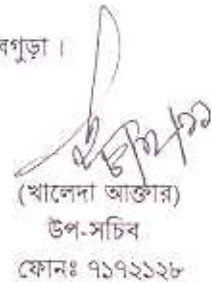 বগুড়া ।
(খালেদা আক্তার)
উপ-সচিব
ফোনঃ ৭১৭২১২৮